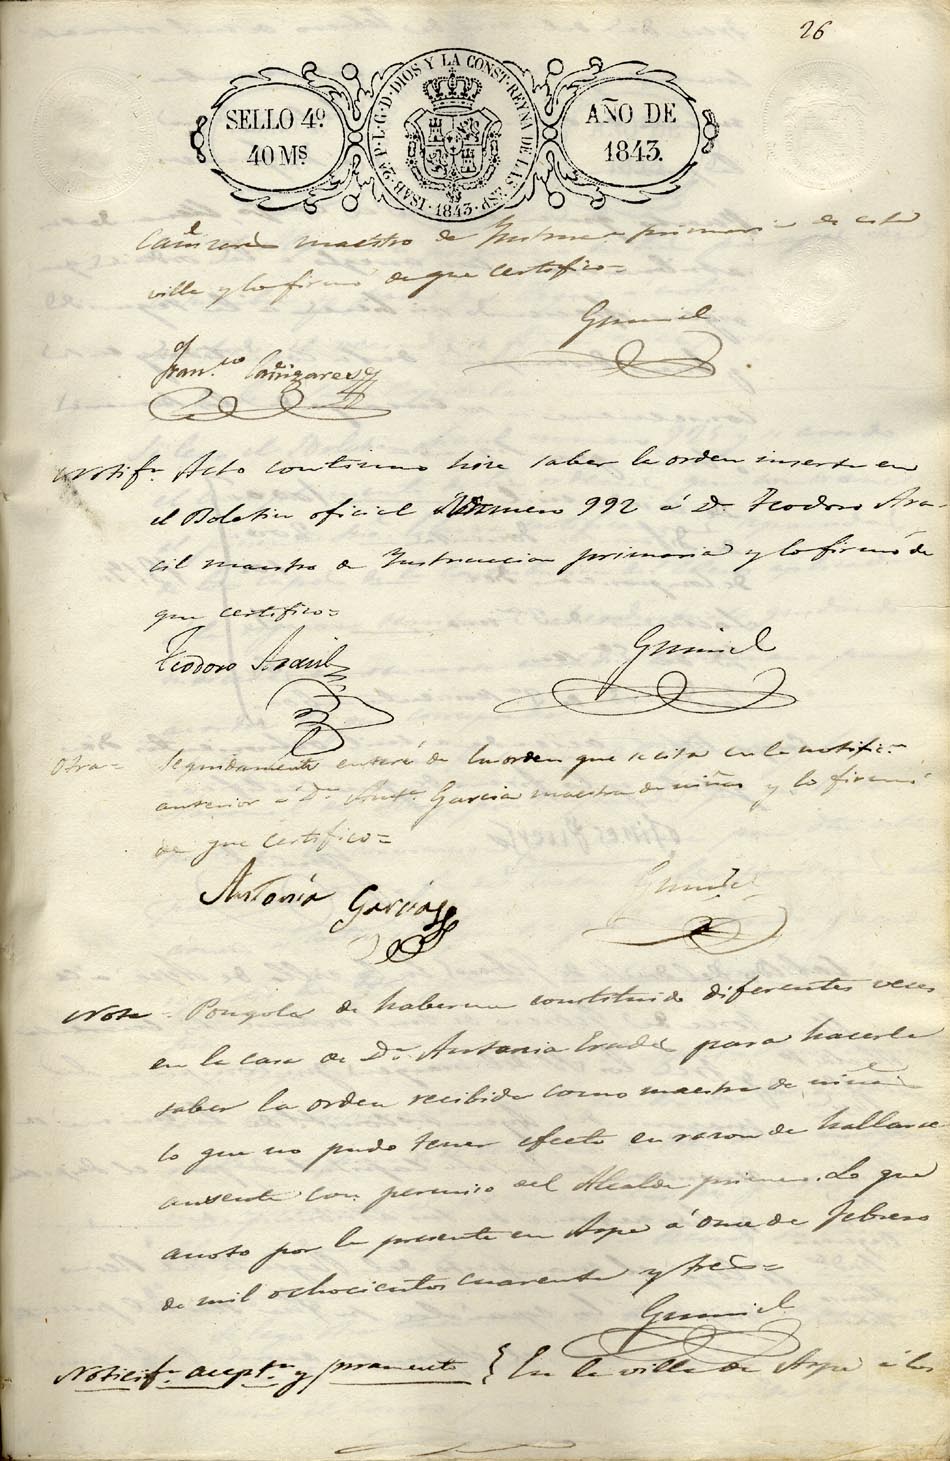 26
SELLO 4º
40 Mˢ
ISAB. 2ª P. L. G. D. DIOS Y LA CONST. REYNA DE LAS ESP. 1843
AÑO DE
1843.
Cañizares maestro de Instrucn. primaria de esta
villa y lo firmó de que certifico=
Gumiel
Fran.co Cañizares
Notifn. Acto continuo hice saber la orden inserta en
el Boletin oficial Numero 992 á Dn. Teodoro Ara-
cil maestro de Instruccion primaria y lo firmó de
que certifico=
Teodoro Aracil
Gumiel
Otra= Seguidamente enteré de la orden que se cita en la notificn.
anterior á Dª. Antª. Garcia maestra de niñas y lo firmó
de que certifico=
Antonia Garcia
Gumiel
Nota= Pongola de haberme constituido diferentes veces
en la casa de Dª. Antonia para hacerla
saber la orden recibida como maestra de niñas
lo que no pudo tener efecto en razon de hallarse
ausente con permiso del Alcalde primero. Lo que
anoto por la presente en Aspe á once de Febrero
de mil ochocientos cuarenta y tres=
Gumiel
Notificn. aceptn. y juramento } En la villa de Aspe á los